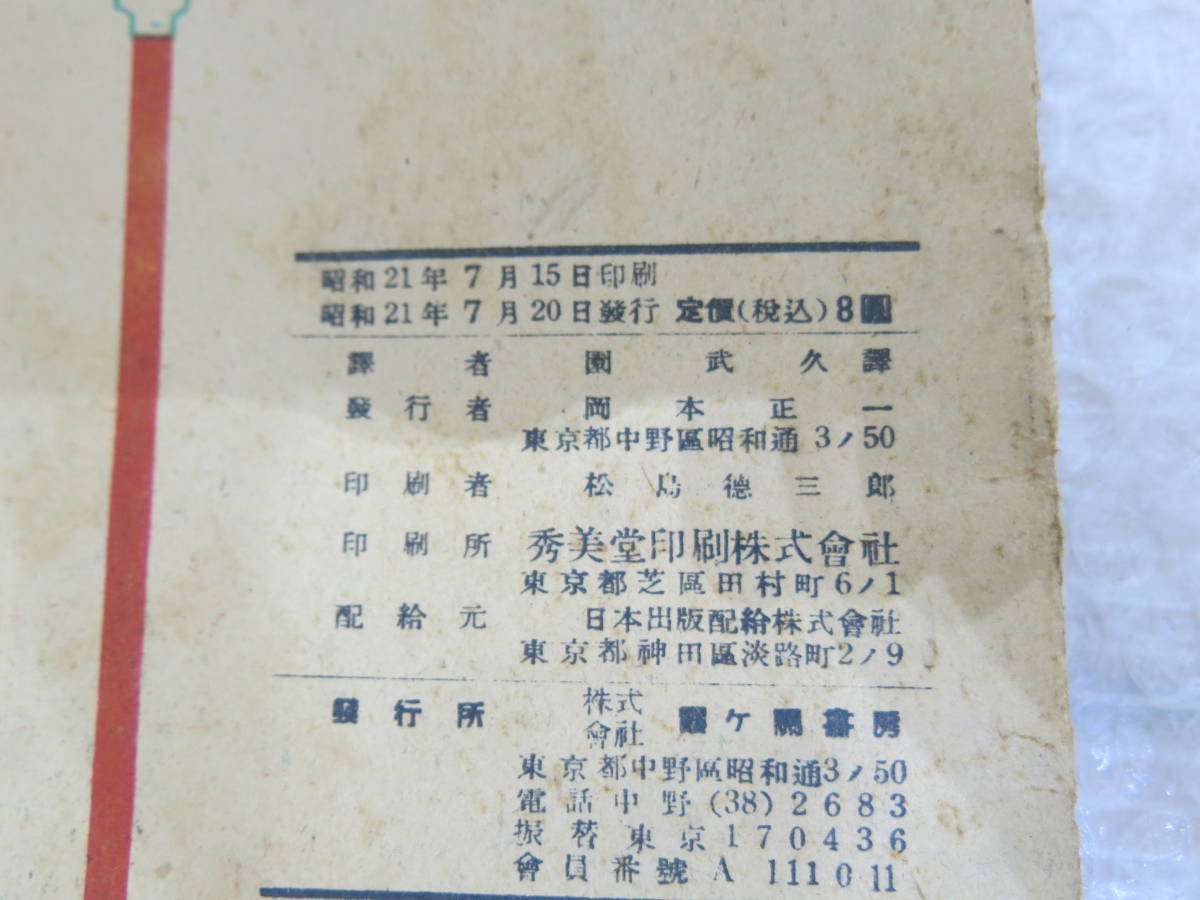 昭和21年7月15日印刷
昭和21年7月20日發行 定價(税込)8圓
譯者 園武久譯
發行者 岡本正一
東京都中野區昭和通3ノ50
印刷者 松島德三郎
印刷所 秀美堂印刷株式會社
東京都芝區田村町6ノ1
配給元 日本出版配給株式會社
東京都神田區淡路町2ノ9
發行所 株式會社 霞ケ關書房
東京都中野區昭和通3ノ50
電話中野(38)2683
振替東京170436
會員番號A111011